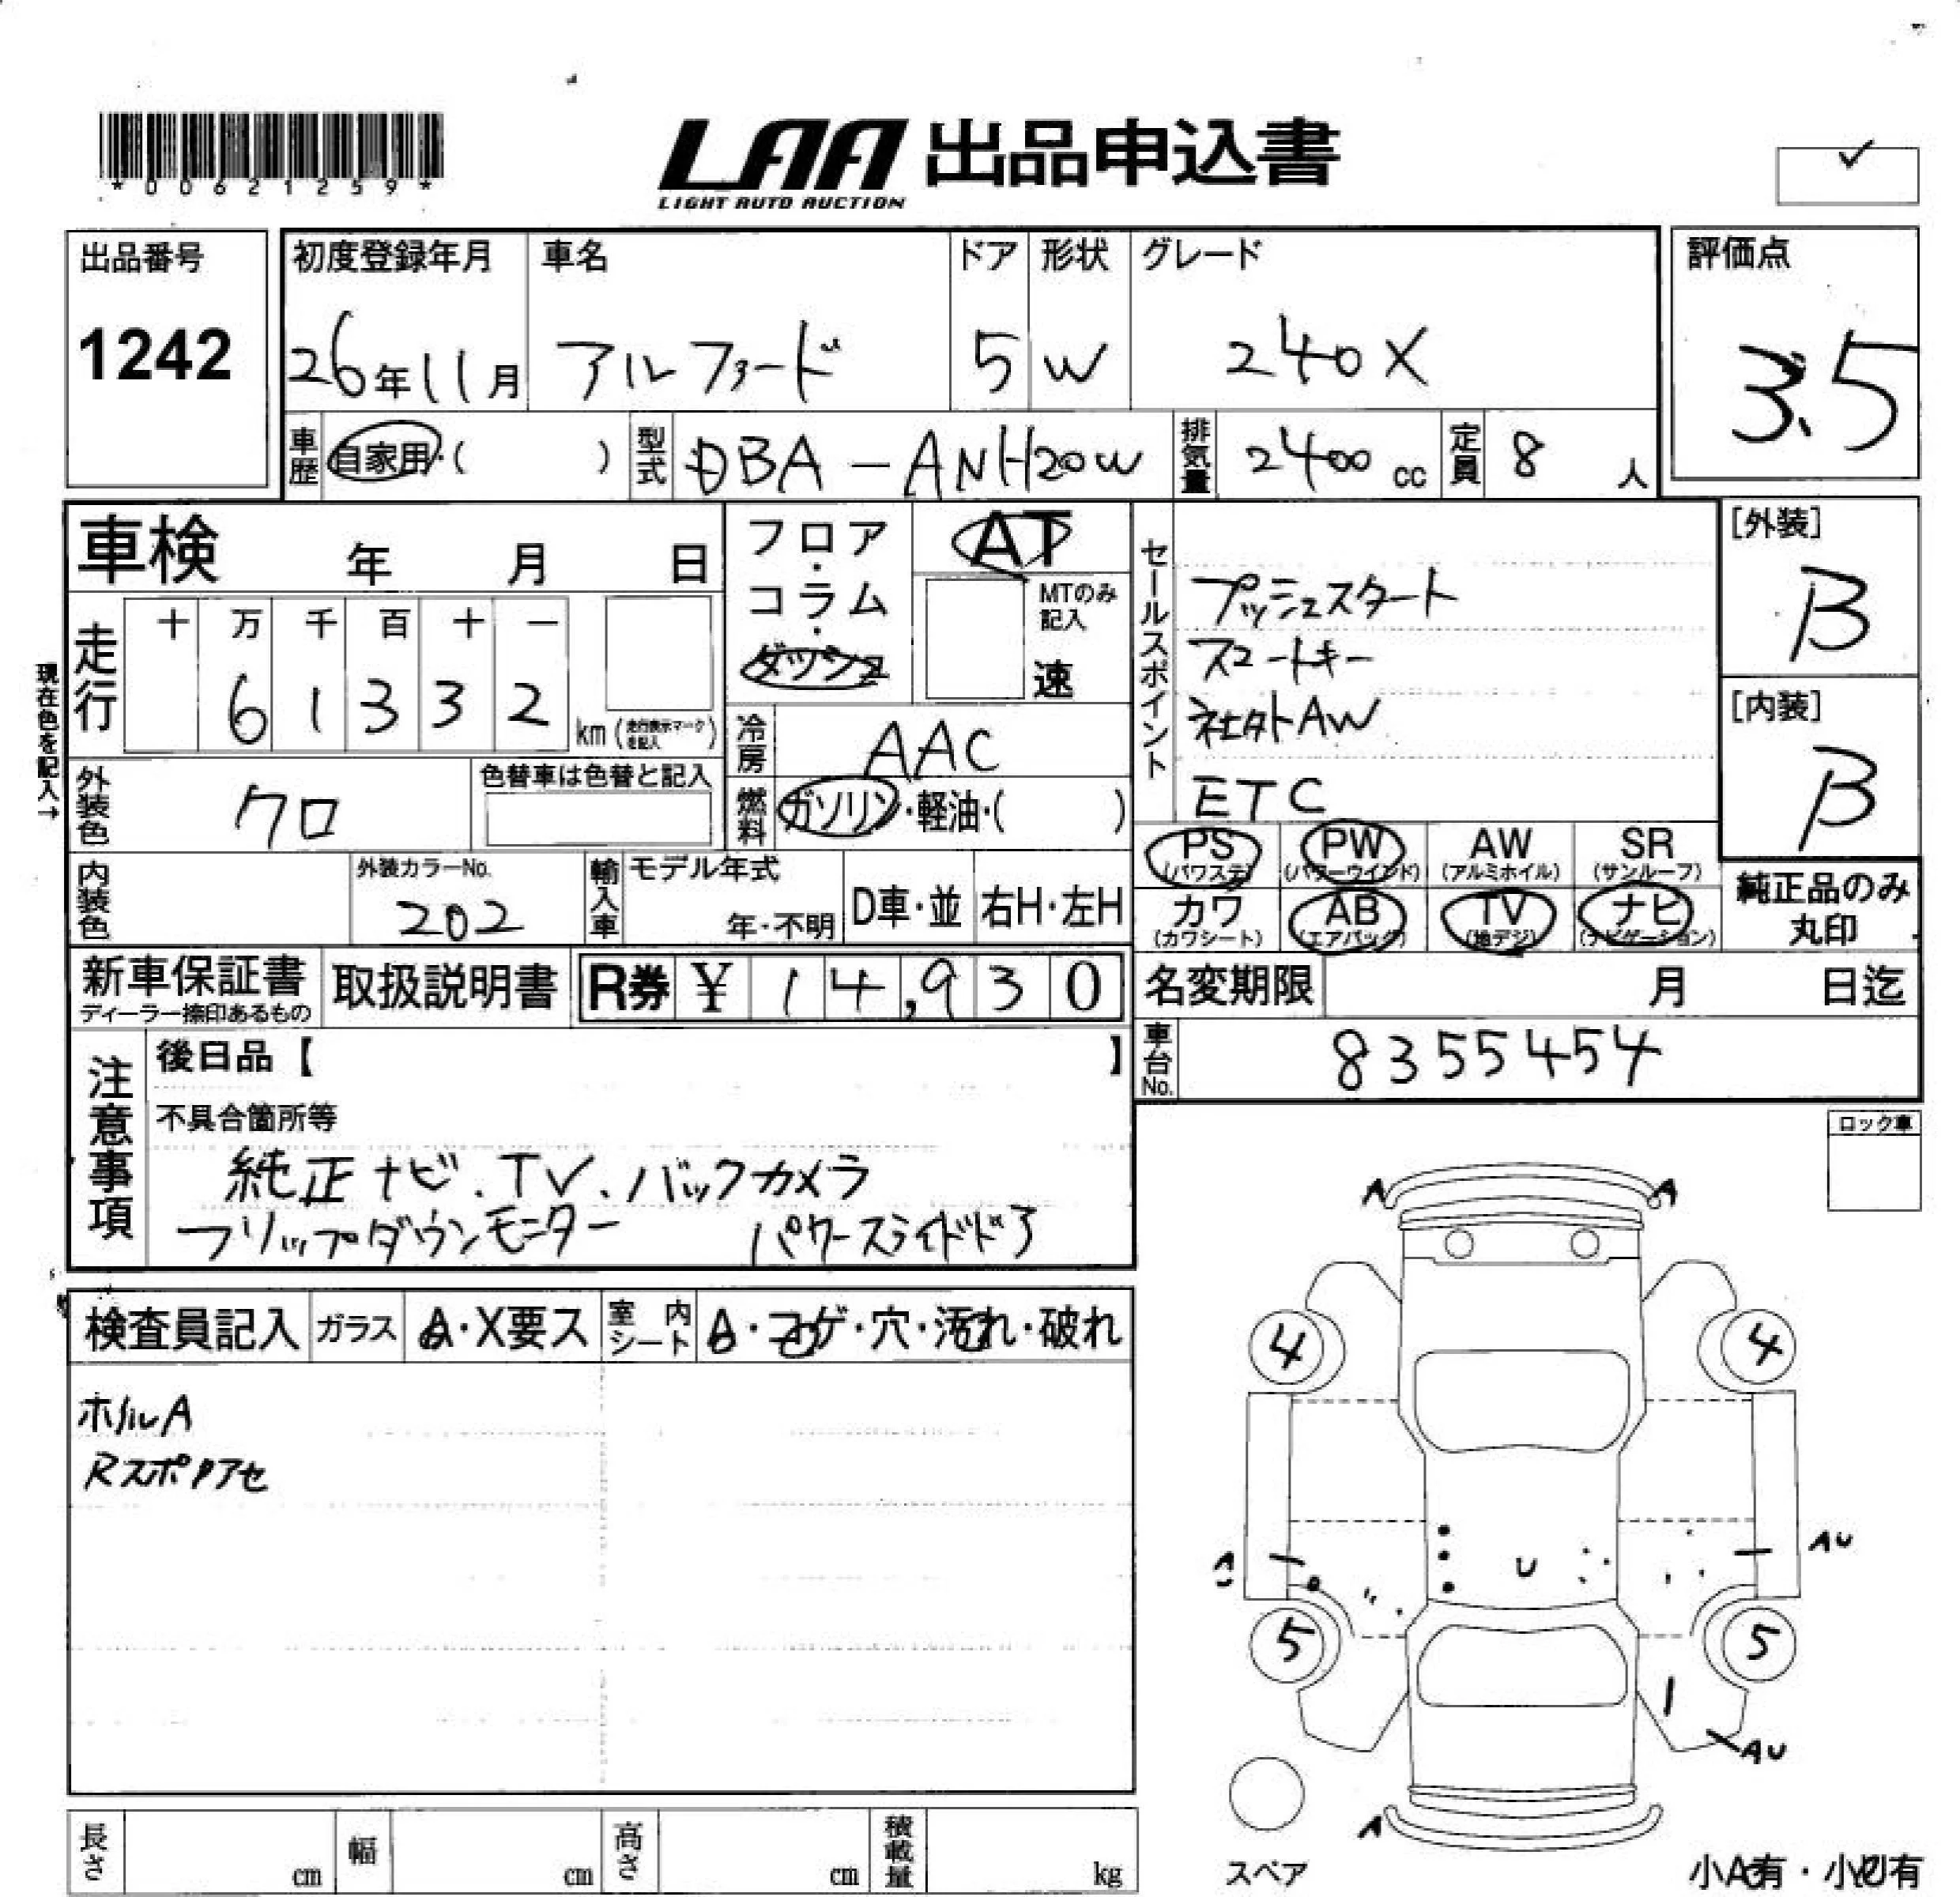 *00621259*
LAA 出品申込書
LIGHT AUTO AUCTION
✓
出品番号
1242
初度登録年月 車名 ドア 形状 グレード
26年11月 アルファード 5 W 240X
評価点
3.5
車歴 自家用・( ) 型式 DBA-ANH20W 排気量 2400cc 定員 8人
車検 年 月 日
フロア・コラム・ダッシュ
AT
MTのみ記入
速
セールスポイント
プッシュスタート
スマートキー
社外AW
ETC
[外装]
B
[内装]
B
現在色を記入→
走行 十 万 千 百 十 一
61332 km (走行表示マークを記入)
冷房 AAC
燃料 ガソリン・軽油・( )
外装色 クロ 色替車は色替と記入
PS (パワステ) PW (パワーウインド) AW (アルミホイル) SR (サンルーフ)
カワ (カワシート) AB (エアバッグ) TV (地デジ) ナビ (ナビゲーション)
純正品のみ丸印
内装色 外装カラーNo. 202 輸入車 モデル年式 年・不明 D車・並 右H・左H
新車保証書 ディーラー捺印あるもの 取扱説明書 R券 ¥ 14,930
名変期限 月 日迄
車台No. 8355454
注意事項
後日品【 】
不具合箇所等
純正ナビ.TV.バックカメラ
フリップダウンモニター パワースライドドア
ロック車
検査員記入 ガラス A・X要ス 室内シート A・コゲ・穴・汚れ・破れ
ホイルA
Rスポイラアセ
A A
4 4
A U AU
U
5 5
AU
A
スペア
小A有・小U有
長さ cm 幅 cm 高さ cm 積載量 kg